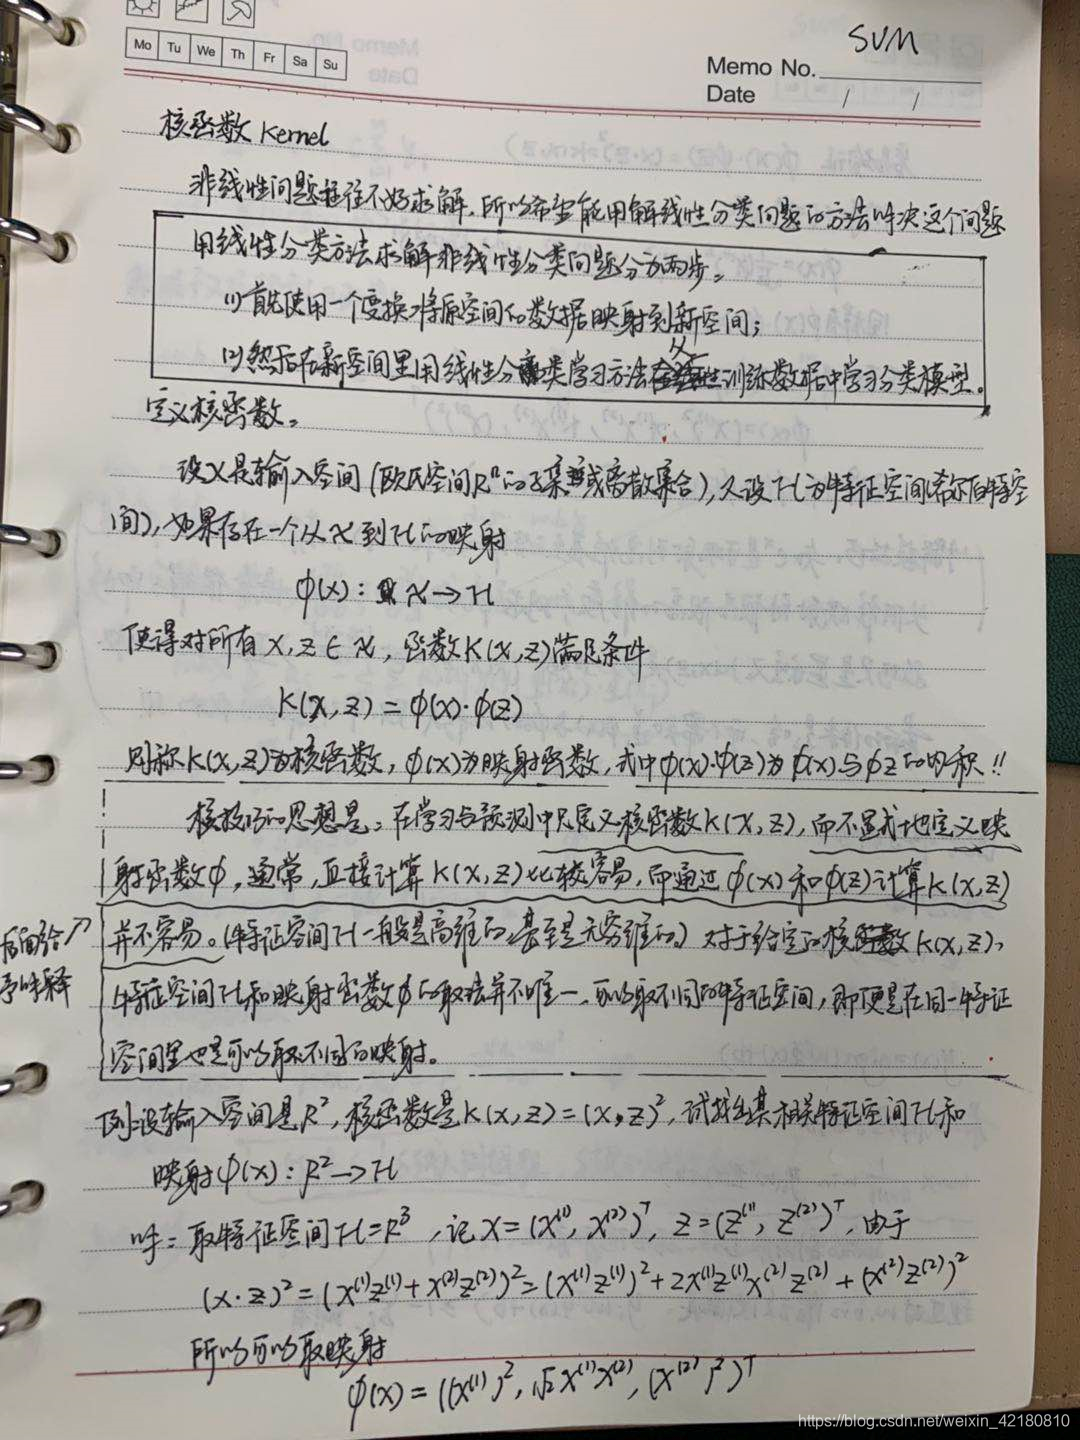 Mo Tu We Th Fr Sa Su
SVM
Memo No.
Date / /
核函数 Kernel
非线性问题往往不好求解,所以希望能用解线性分类问题的方法解决这个问题
用线性分类方法求解非线性分类问题分为两步。
(1)首先使用一个变换将原空间的数据映射到新空间;
(2)然后在新空间里用线性分类学习方法从训练数据中学习分类模型。
定义核函数。
设X是输入空间(欧氏空间Rⁿ的子集或离散集合),又设H为特征空间(希尔伯特空
间),如果存在一个从X到H的映射
φ(x): X→H
使得对所有x,z∈X,函数K(x,z)满足条件
K(x,z)=φ(x)·φ(z)
则称K(x,z)为核函数,φ(x)为映射函数,式中φ(x)·φ(z)为φ(x)与φz的内积!!
核技巧的思想是。在学习与预测中只定义核函数K(x,z),而不显式地定义映
射函数φ,通常,直接计算K(x,z)比较容易,而通过φ(x)和φ(z)计算K(x,z)
并不容易。(特征空间H一般是高维的,甚至是无穷维的)对于给定的核函数K(x,z),
后面给
予解释
特征空间H和映射函数φ的取法并不唯一,可以取不同的特征空间,即便是在同一特征
空间里也是可以取不同的映射。
例:设输入空间是R²,核函数是K(x,z)=(x·z)²,试找出某相关特征空间H和
映射φ(x): R²→H
解:取特征空间H=R³,记x=(x⁽¹⁾, x⁽²⁾)ᵀ, z=(z⁽¹⁾, z⁽²⁾)ᵀ,由于
(x·z)²=(x⁽¹⁾z⁽¹⁾+x⁽²⁾z⁽²⁾)²=(x⁽¹⁾z⁽¹⁾)²+2x⁽¹⁾z⁽¹⁾x⁽²⁾z⁽²⁾+(x⁽²⁾z⁽²⁾)²
所以可以取映射
φ(x)=((x⁽¹⁾)², √2x⁽¹⁾x⁽²⁾, (x⁽²⁾)²)ᵀ
https://blog.csdn.net/weixin_42180810